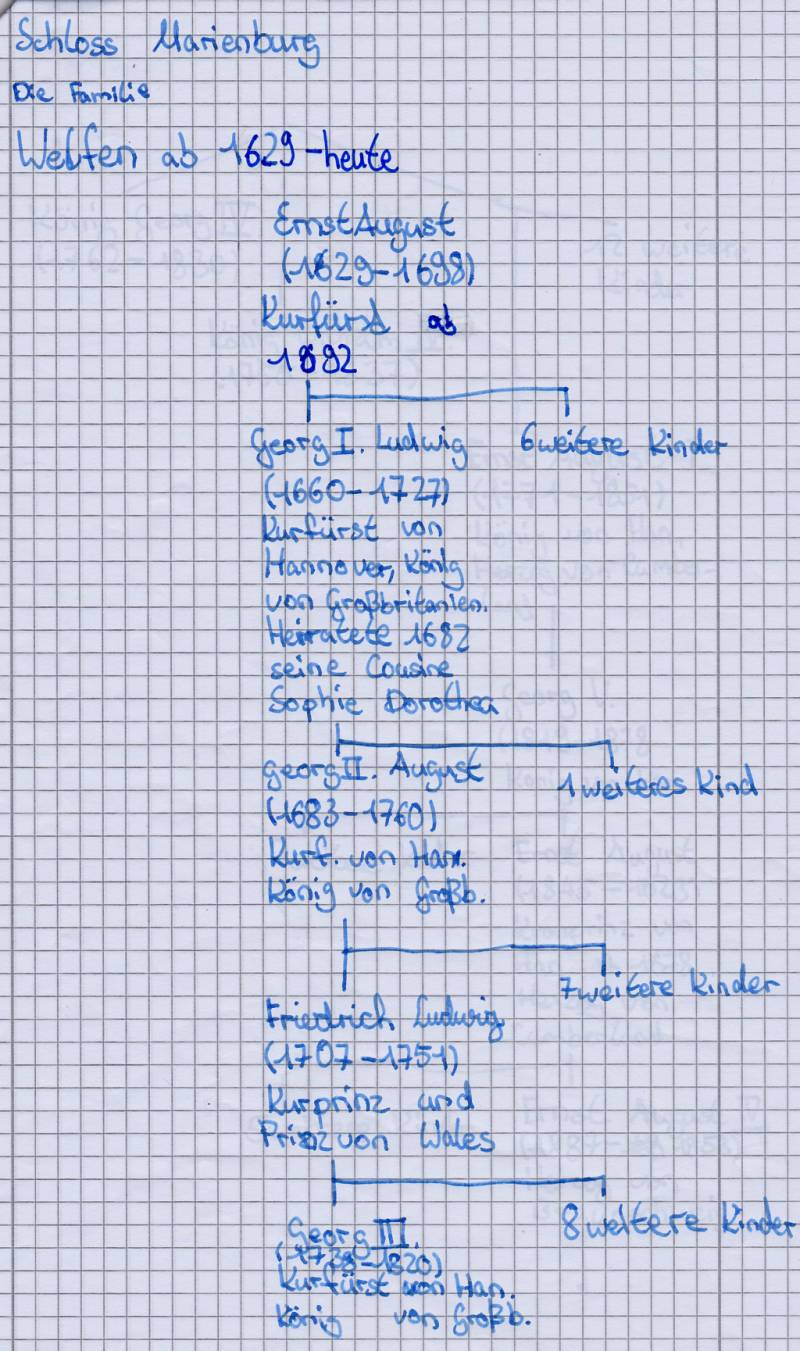 Schloss Marienburg
Die Familie
Welfen ab 1629-heute
Ernst August
(1629-1698)
Kurfürst ab
1692
Georg I. Ludwig 6 weitere Kinder
(1660-1727)
Kurfürst von
Hannover, König
von Großbritanien.
Heiratete 1682
seine Cousine
Sophie Dorothea
Georg II. August 1 weiteres Kind
(1683-1760)
Kurf. von Han.
König von Großb.
7 weitere Kinder
Friedrich Ludwig
(1707-1751)
Kurprinz und
Prinz von Wales
8 weitere Kinder
Georg III.
(1738-1820)
Kurfürst von Han.
König von Großb.